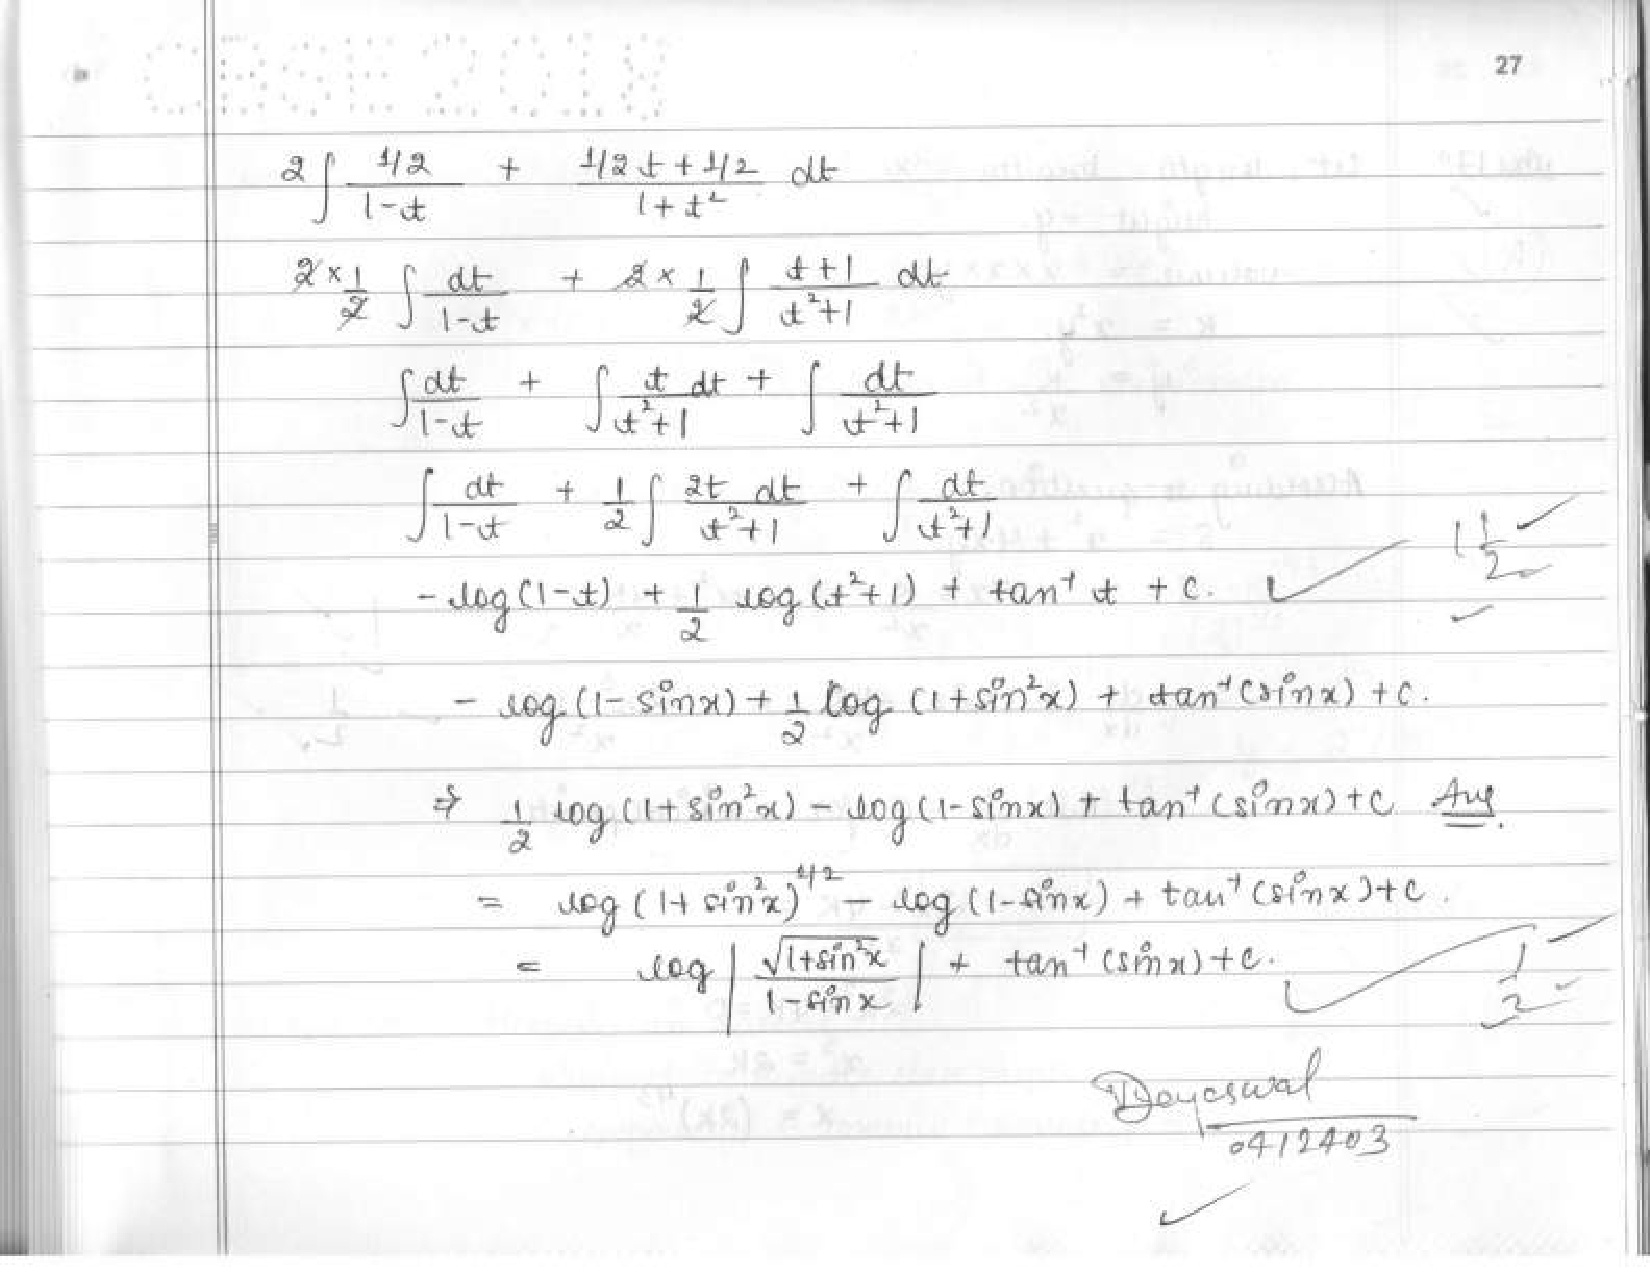 CBSE 2018
27
2∫ (1/2)/(1-t) + (1/2t + 1/2)/(1+t²) dt
2 × 1/2 ∫ dt/(1-t) + 2 × 1/2 ∫ (t+1)/(t²+1) dt
∫ dt/(1-t) + ∫ t dt/(t²+1) + ∫ dt/(t²+1)
∫ dt/(1-t) + 1/2 ∫ 2t dt/(t²+1) + ∫ dt/(t²+1)
1 1/2
- log(1-t) + 1/2 log(t²+1) + tan⁻¹ t + c.
- log(1-sinx) + 1/2 log(1+sin²x) + tan⁻¹(sinx) + c.
⇒ 1/2 log(1+sin²x) - log(1-sinx) + tan⁻¹(sinx) + c Ans.
= log(1+sin²x)^1/2 - log(1-sinx) + tan⁻¹(sinx) + c.
= log |√(1+sin²x)/(1-sinx)| + tan⁻¹(sinx) + c.
1/2
0412403